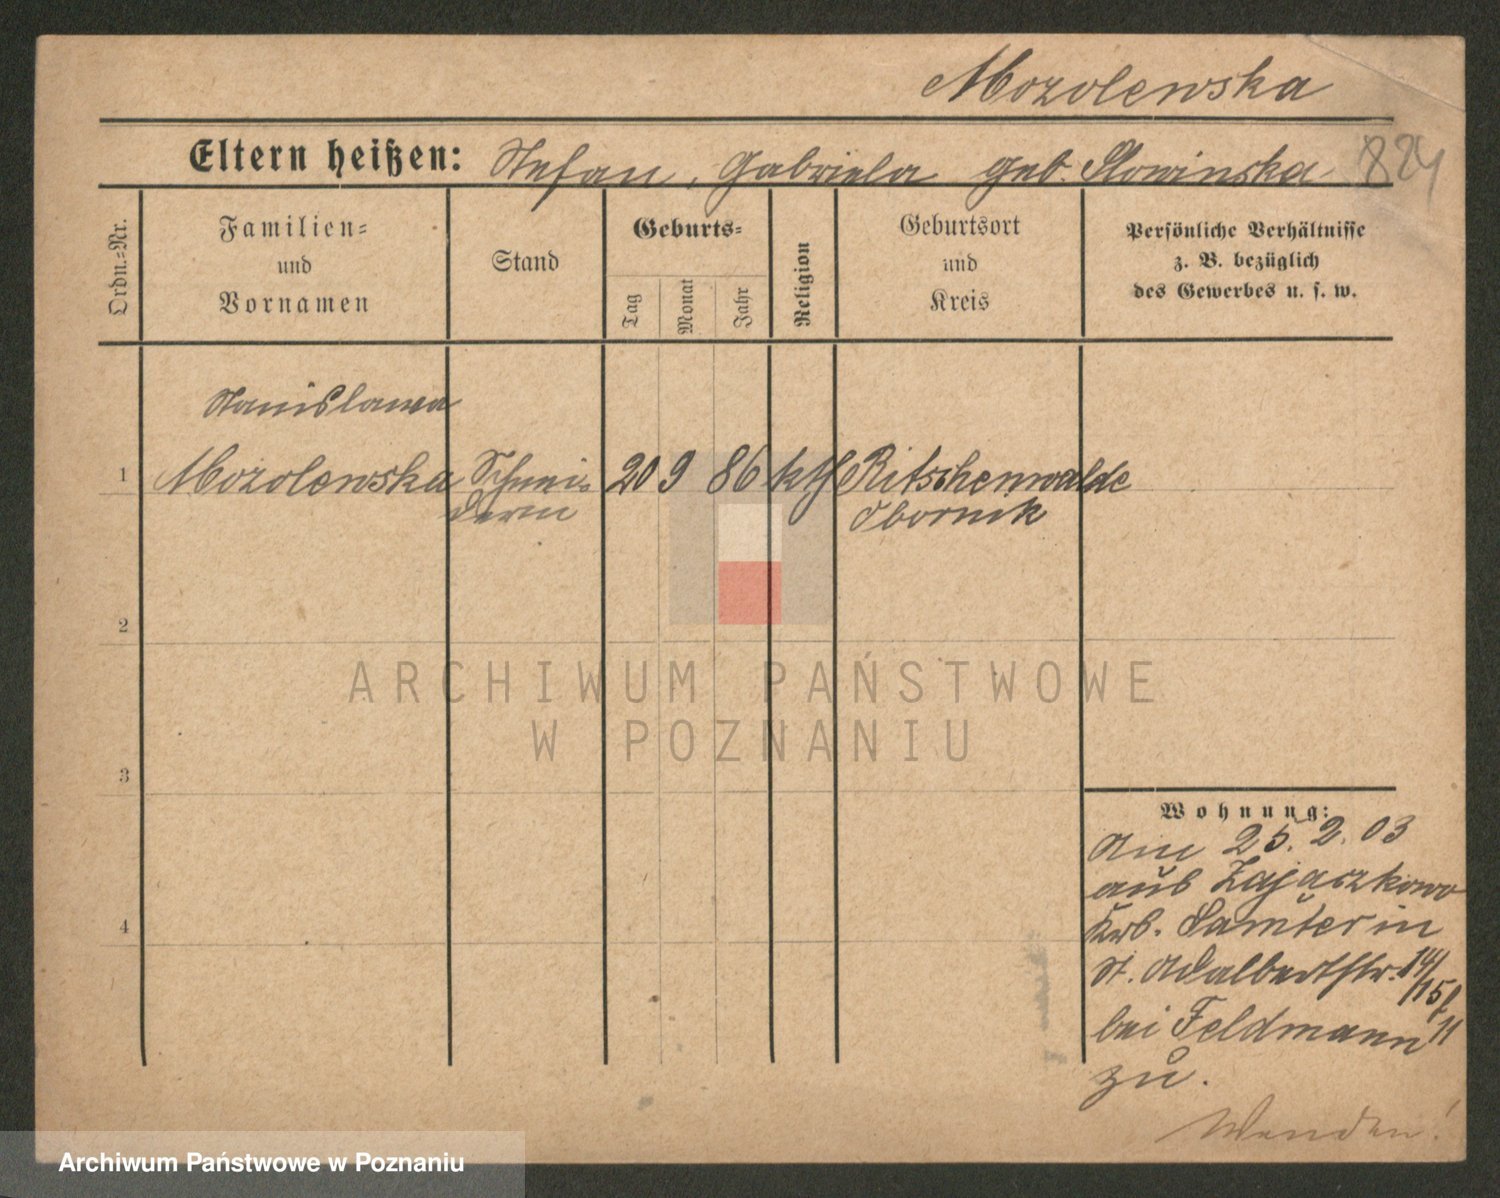 Mozolewska
Eltern heißen: Stefan, Gabriela geb. Slowinska 824
Ordn.=Nr.
Familien=
und
Vornamen
Stand
Geburts=
Tag
Monat
Jahr
Religion
Geburtsort
und
Kreis
Persönliche Verhältnisse
z. B. bezüglich
des Gewerbes u. s. w.
Stanislawa
1 Mozolewska Schnei- 20 9 86 kth Ritschenwalde
derin Obornik
2
3
4
Wohnung:
Am 25. 2. 03
aus Zajaczkowo
Krs. Samter in
St. Adalbertstr. 14/
15
bei Feldmann
zu.
Wenden!
ARCHIWUM PAŃSTWOWE
W POZNANIU
Archiwum Państwowe w Poznaniu